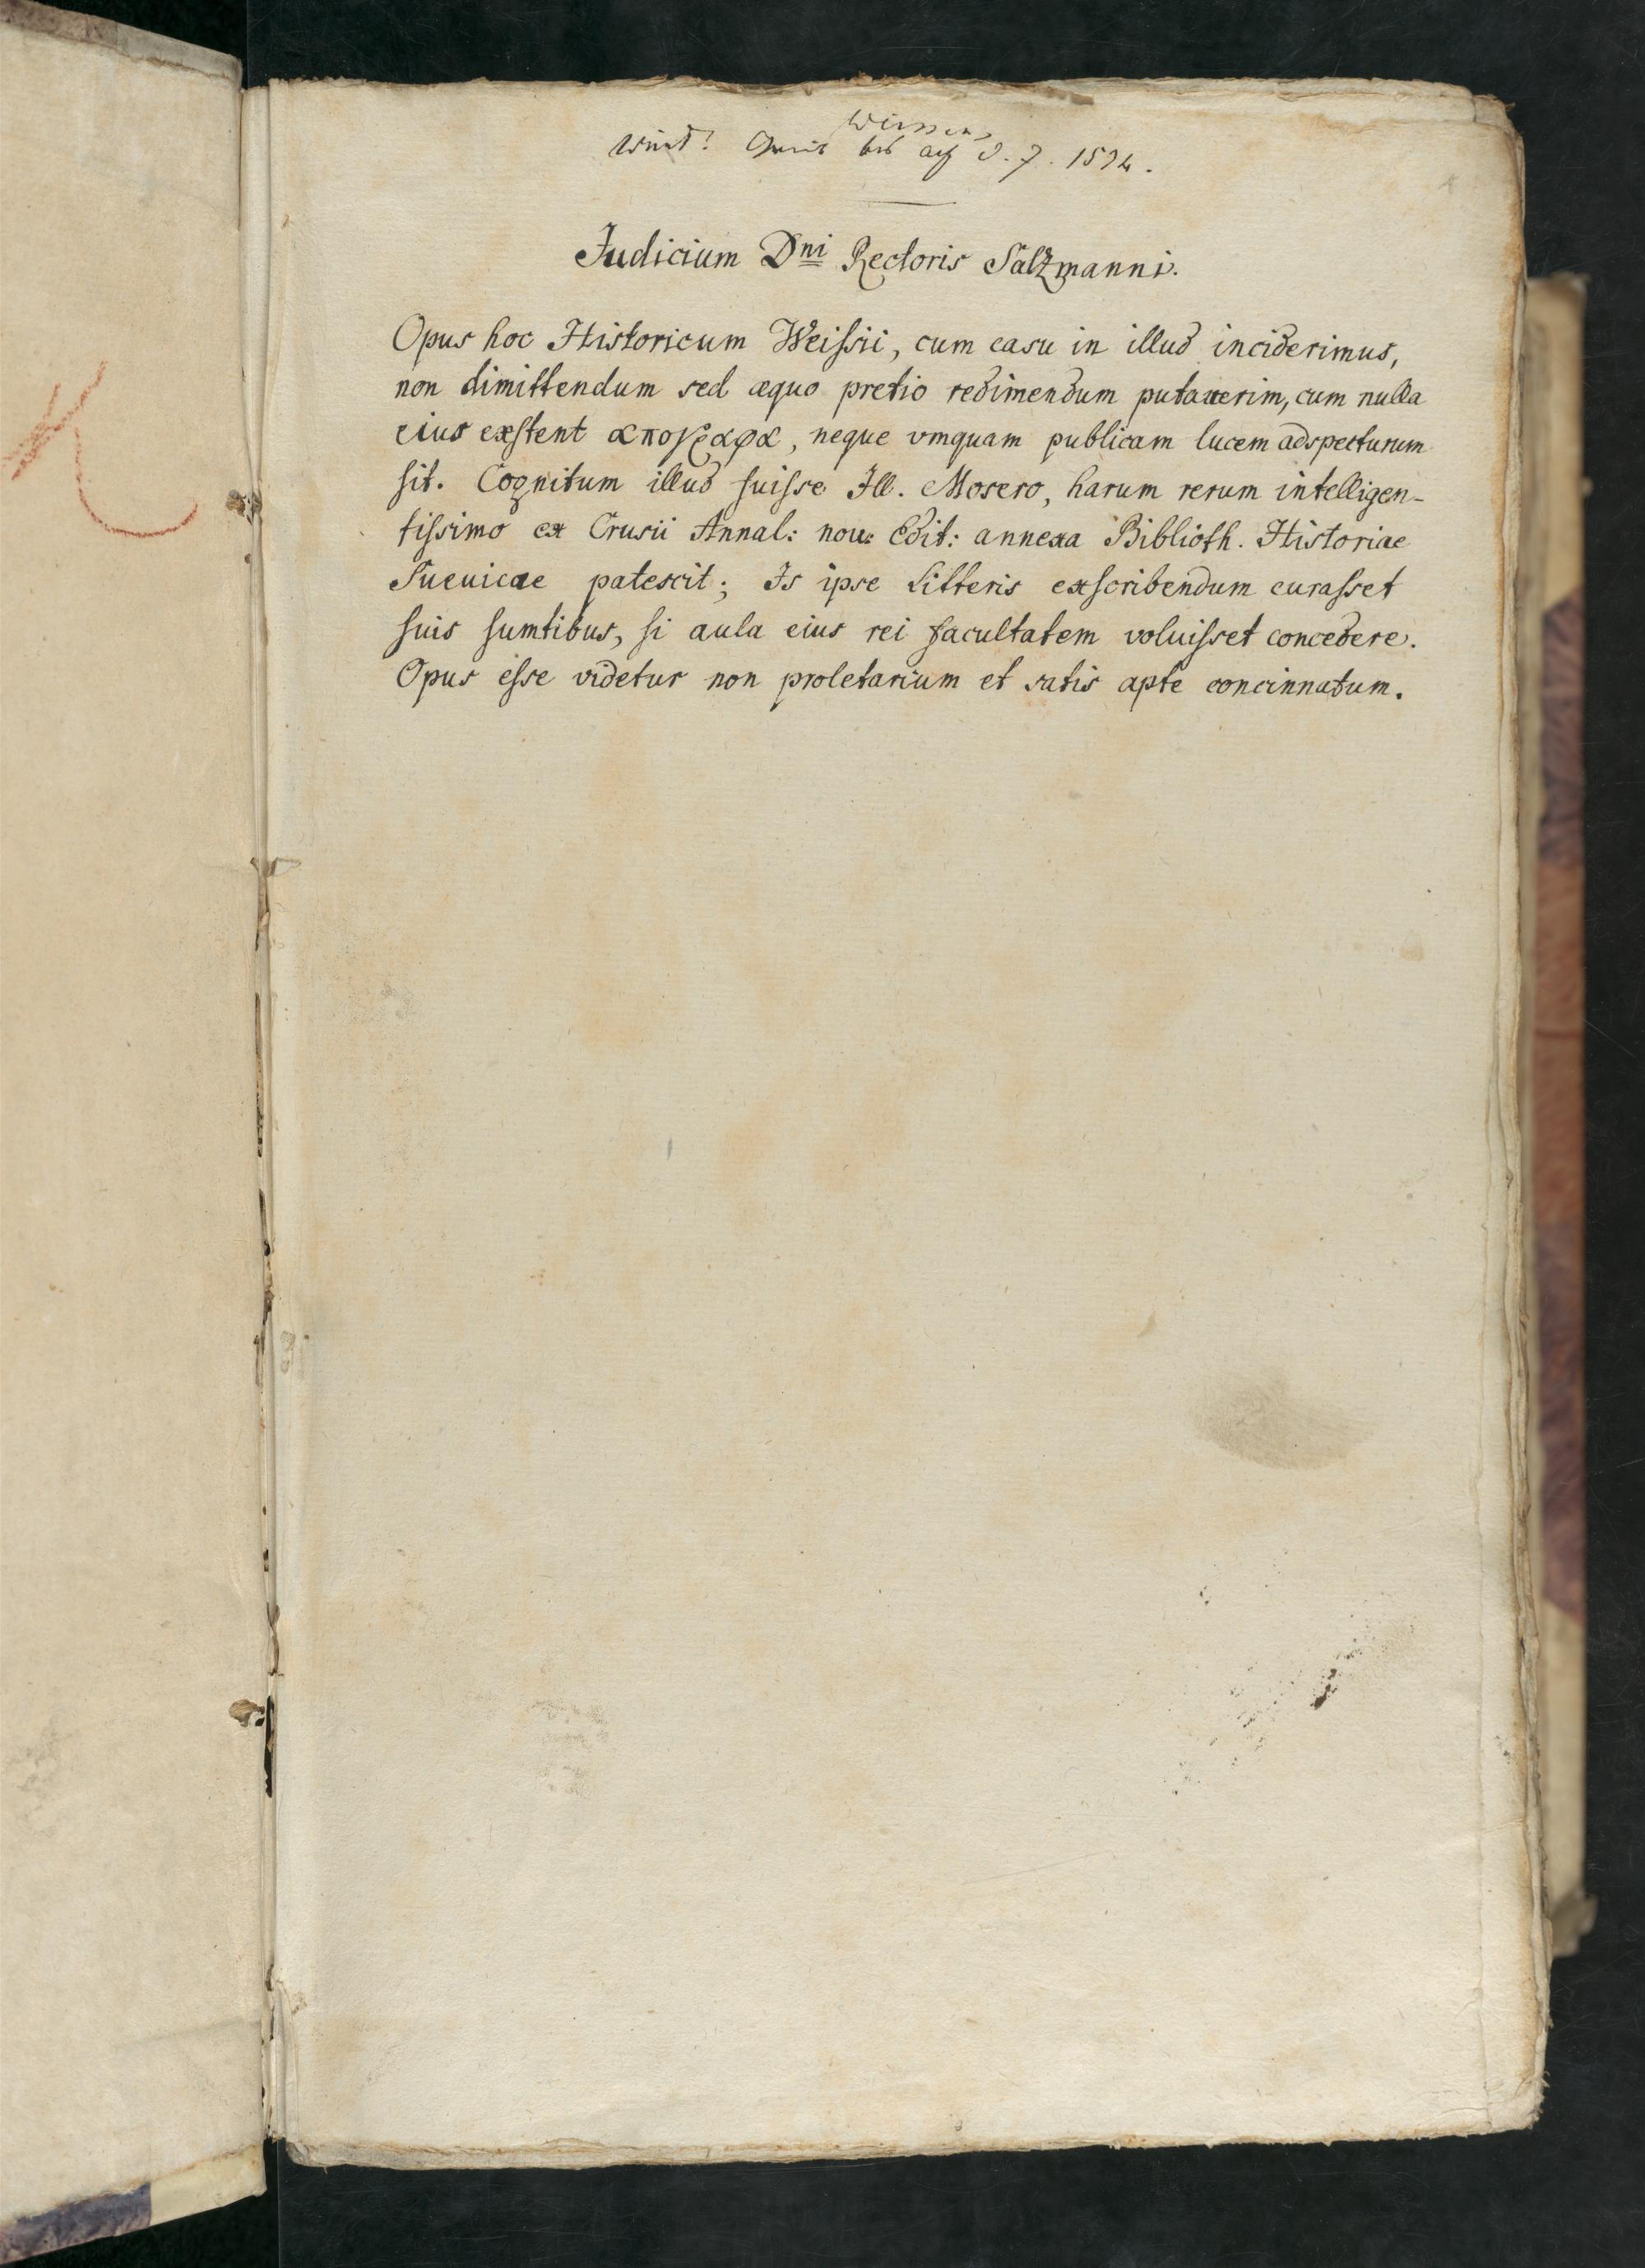 Wirt! bis auf d. J. 1594.
Judicium Dni Rectoris Salzmanni.
Opus hoc Historicum Weissii, cum casu in illud inciderimus,
non dimittendum sed æquo pretio redimendum putauerim, cum nulla
eius exstent απογραφα, neque vmquam publicam lucem adspecturum
sit. Cognitum illud fuisse Ill. Mosero, harum rerum intelligen-
tissimo ex Crusii Annal: nou: Edit: annexa Biblioth. Historiae
Sueuicae patescit; Is ipse Litteris exscribendum curasset
suis sumtibus, si aula eius rei facultatem voluisset concedere.
Opus esse videtur non proletarium et satis apte concinnatum.